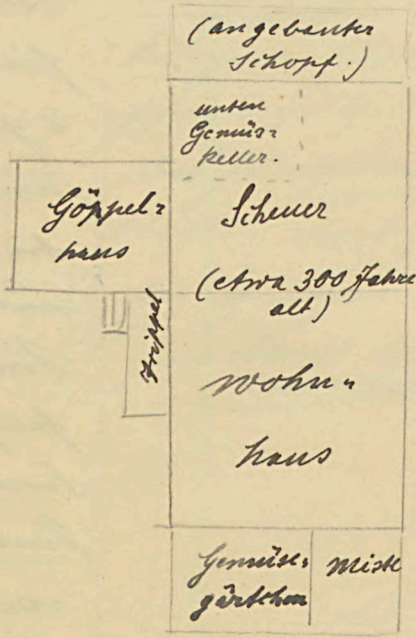 (angebauter
Schopf.)
unten
Gemüs=
keller.
Göppel=
haus
Scheuer
(etwa 300 Jahre
alt)
Trippel
Wohn=
haus
Gemüse=
gärtchen
Miste